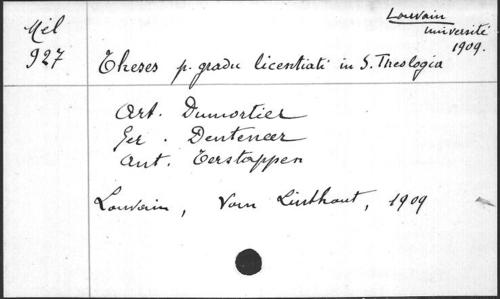 Louvain
Université
1909.
Mél
927
Theses p. gradu licentiati in S. Theologia
Art. Dumortier
Ger. Denteneer
Ant. Terstappen
Louvain, Vam Linthout, 1909